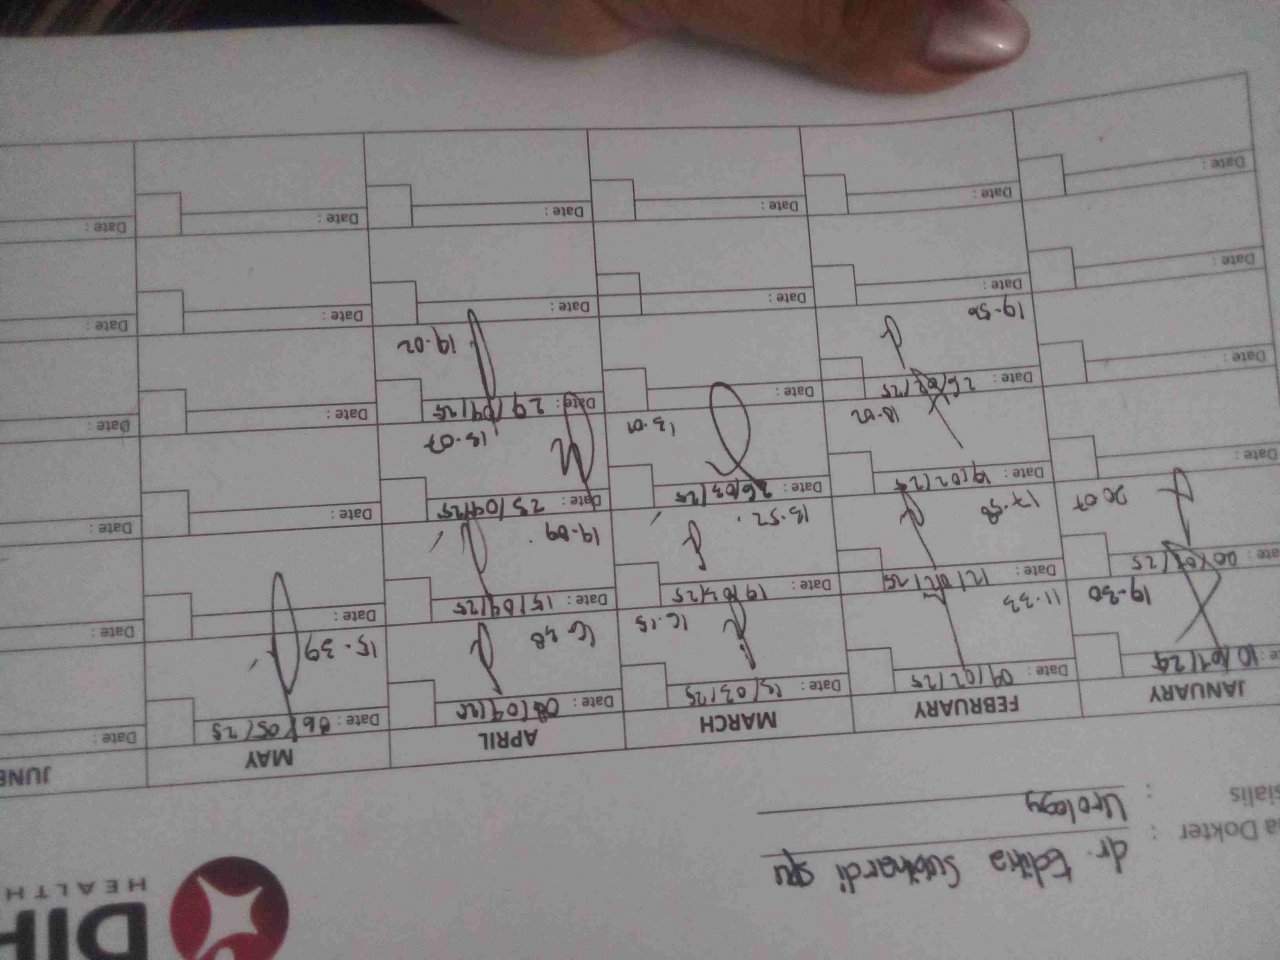 HEALTH
a Dokter : dr.
sialis : Urology
JANUARY FEBRUARY MARCH APRIL MAY JUNE
Date: 04/02/25 Date: 13/03/25 Date: 08/04/25 Date: 06/05/25 Date:
19-30 11-33 16.15 15.39
Date: 12/02/25 Date: 19/03/25 Date: 15/04/25 Date: Date:
20.07 17.58 13.52 19.09
Date: Date: 19/02/25 Date: 26/03/25 Date: 23/04/25 Date: Date:
18.02 13.01 13.07
Date: Date: 26/02/25 Date: Date: 29/04/25 Date: Date:
19-50 19.02
Date: Date: Date: Date: Date: Date:
Date: Date: Date: Date: Date: Date: